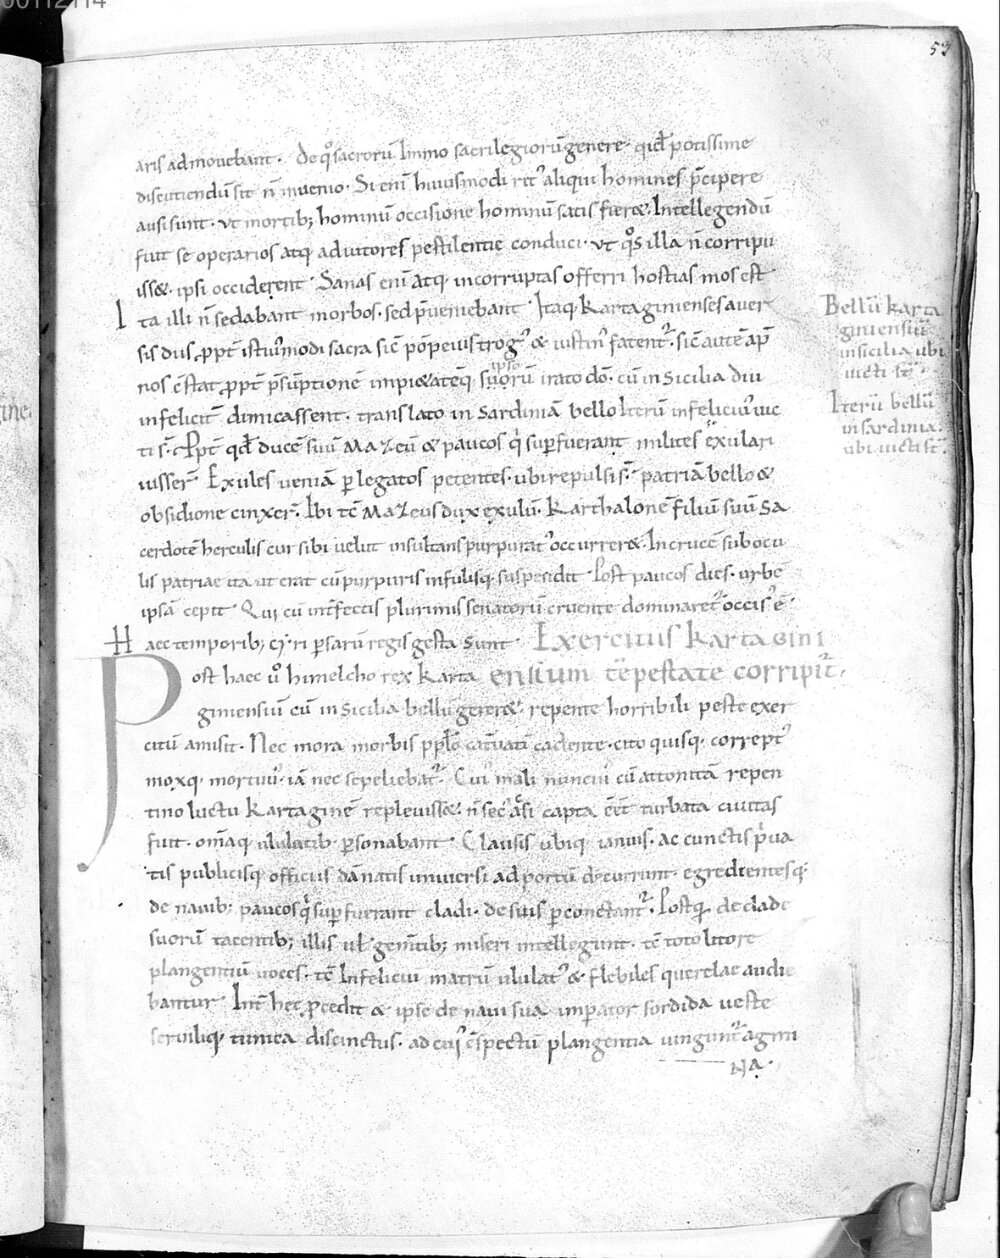 00112114
53
aris admovebant. De q°sacrorū Immo sacrilegiorū genere. qid potissime
discutiendū sit n̄ invenio. Si enī huiusmodi rit' aliqui homines p̄cipere
ausi sunt. ut mortib; hominū occisione hominū satis fier&. Intellegendū
fuit se operarios atq; adiutores pestilentię conduci. ut q°s illa n̄ corripu
iss&. ipsi occiderent. Sanas enī atq; incorruptas offerri hostias mos est
Ita illi n̄ sedabant morbos. sed p̄veniebant. Itaq; Kartaginienses aver
sis diis, ppt̄ istiusmodi sacra sic̄ pōpeius trog' & iustin' fatent^r. sic̄ autē ap̄
nos c̄stat, ppt̄ p̄sūptionē impi&atēq; suorū irato dō. cū in Sicilia diu
ipso
infelicit̄ dimicassent. translato in Sardiniā bello Iterū infeliciu' vic
ti s̄. Ppt̄ qd̄ ducē suū Mazeū & paucos q̄ sup̄fuerant milites exulari
iusser̄. Exules veniā p̄ legatos petentes. ubi repulsi s̄. patriā bello &
obsidione cinxer̄. Ibi tc̄ Mazeus dux exulū. Karthalonē filiū suū Sa
cerdotē herculis cur sibi velut insultans purpurat' occurrer&. In crucē sub ocu
lis patriae ita ut erat cū purpuris infulisq; suspendit. Post paucos dies. urbē
ipsā cepit. Qui cū int̄fectis plurimis senatorū cruente dominaret^r occis' ē
Haec temporib; cyri p̄sarū regis gesta sunt. Exercitus Kartagini
Post haec u° himelcho rex Karta ensium tēpestate corripit^r.
giniensiū cū in Sicilia bellū gerer&. repente horribili peste exer
citū amisit. Nec mora morbis pp̄lo cat̄vati cadente. cito quisq; corrept'
moxq; mortuu'. iā nec sepeliebat^r. Cui' mali nunciu' cū attonitā repen
tino luctu Kartaginē repleviss&. n̄ sec' q^asi capta eēt turbata civitas
fuit. om̄aq; ululatib; p̄sonabant. Clausis ubiq; ianuis. ac cunctis p̄va
tis publicisq; officiis dānatis universi ad portū decurrunt. egredientesq;
de navib; paucos q̄ sup̄fuerant cladi. de suis p̄conctant^r. Postq; de clade
suorū tacentib; illis vl̄ gem̄tib; miseri intellegunt. tc̄ toto litore
plangentiū voces. tc̄ Infeliciū matrū ululat' & flebiles querelae audie
bantur. Int̄ hec, p̄cedit & ipse de navi sua imp̄ator sordida veste
servilíq; tunica discinctus. ad cui' c̄spectū plangentia iungunt^r agmi
NA.
Bellū karta
giniensiū
in sicilia ubi
victi st̄.
Iterū bellū
in sardinia.
ubi victi st̄.